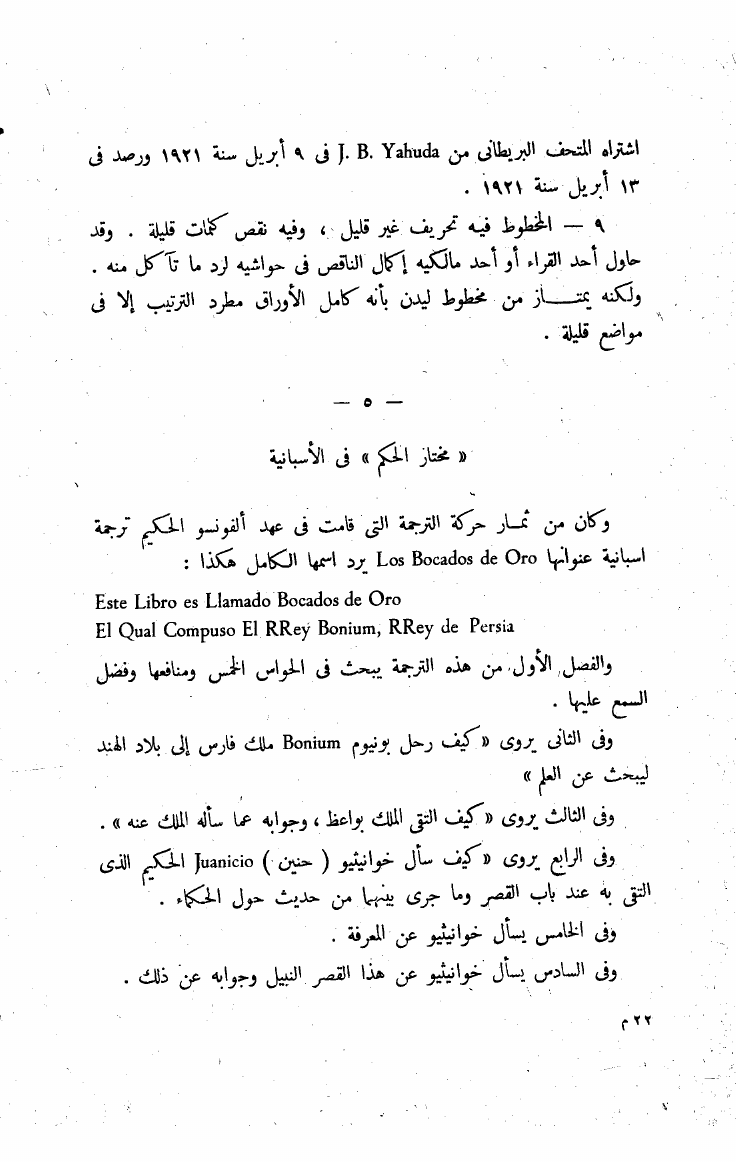 اشتراه المتحف البريطانى من J. B. Yahuda فى ٩ أبريل سنة ١٩٢١ ورصد فى
١٣ أبريل سنة ١٩٢١ .
٩ — المخطوط فيه تحريف غير قليل ، وفيه نقص كلمات قليلة . وقد
حاول أحد القراء أو أحد مالكيه إكمال الناقص فى حواشيه لرد ما تآكل منه .
ولكنه يمتــــاز من مخطوط ليدن بأنه كامل الأوراق مطرد الترتيب إلا فى
مواضع قليلة .
— ٥ —
« مختار الحكم » فى الأسبانية
وكان من ثمــار حركة الترجمة التى قامت فى عهد ألفونسو الحكيم ترجمة
اسبانية عنوانها Los Bocados de Oro يرد اسمها الكامل هكذا :
Este Libro es Llamado Bocados de Oro
El Qual Compuso El RRey Bonium, RRey de Persia
والفصل الأول من هذه الترجمة يبحث فى الحواس الخمس ومنافعها وفضل
السمع عليها .
وفى الثانى يروى « كيف رحل بونيوم Bonium ملك فارس إلى بلاد الهند
ليبحث عن العلم »
وفى الثالث يروى « كيف التقى الملك بواعظ ، وجوابه عما سأله الملك عنه » .
وفى الرابع يروى « كيف سأل خوانيثيو ( حنين ) Juanicio الحكيم الذى
التقى به عند باب القصر وما جرى بينهما من حديث حول الحكماء .
وفى الخامس يسأل خوانيثيو عن المعرفة .
وفى السادس يسأل خوانيثيو عن هذا القصر النبيل وجوابه عن ذلك .
٢٢ م